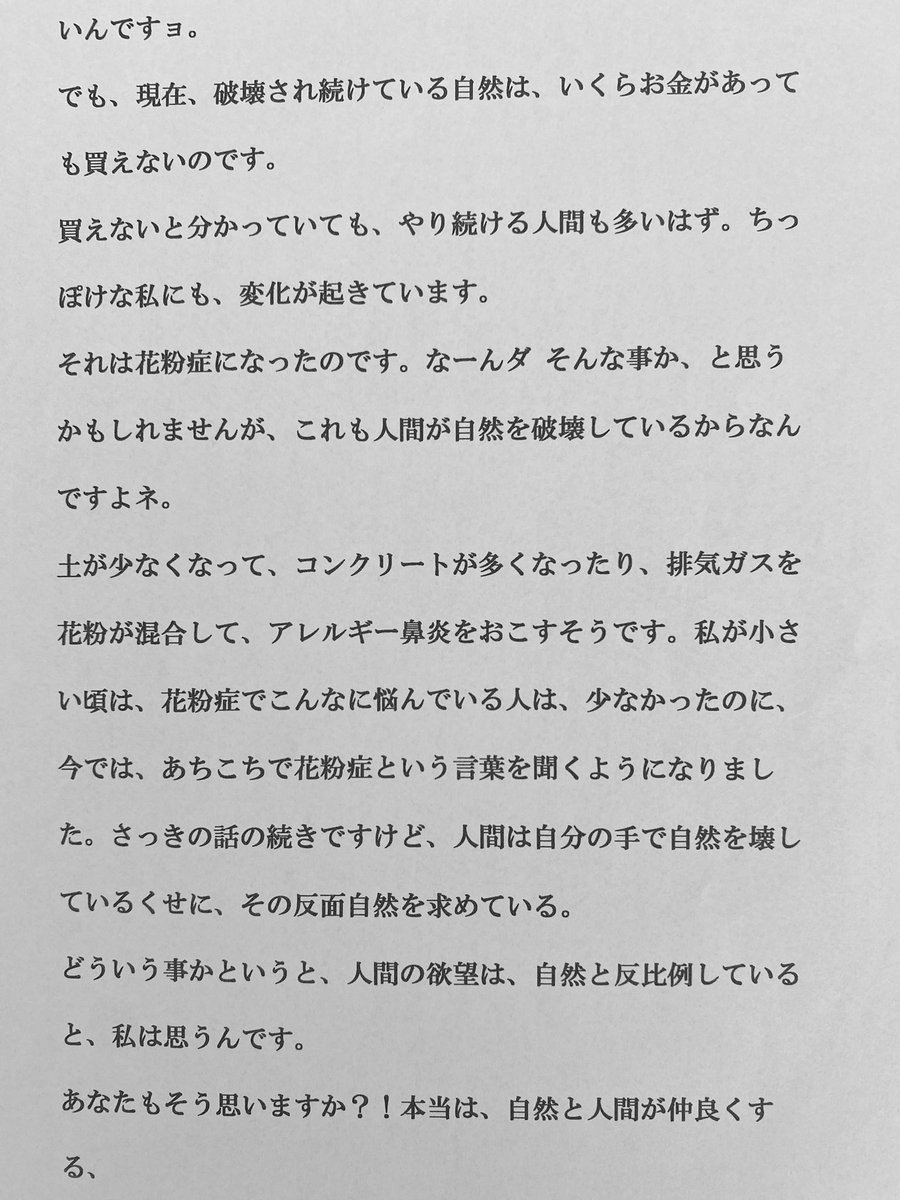 いんですョ。
でも、現在、破壊され続けている自然は、いくらお金があって
も買えないのです。
買えないと分かっていても、やり続ける人間も多いはず。ちっ
ぽけな私にも、変化が起きています。
それは花粉症になったのです。なーんダ そんな事か、と思う
かもしれませんが、これも人間が自然を破壊しているからなん
ですよネ。
土が少なくなって、コンクリートが多くなったり、排気ガスを
花粉が混合して、アレルギー鼻炎をおこすそうです。私が小さ
い頃は、花粉症でこんなに悩んでいる人は、少なかったのに、
今では、あちこちで花粉症という言葉を聞くようになりまし
た。さっきの話の続きですけど、人間は自分の手で自然を壊し
ているくせに、その反面自然を求めている。
どういう事かというと、人間の欲望は、自然と反比例している
と、私は思うんです。
あなたもそう思いますか？！本当は、自然と人間が仲良くす
る、